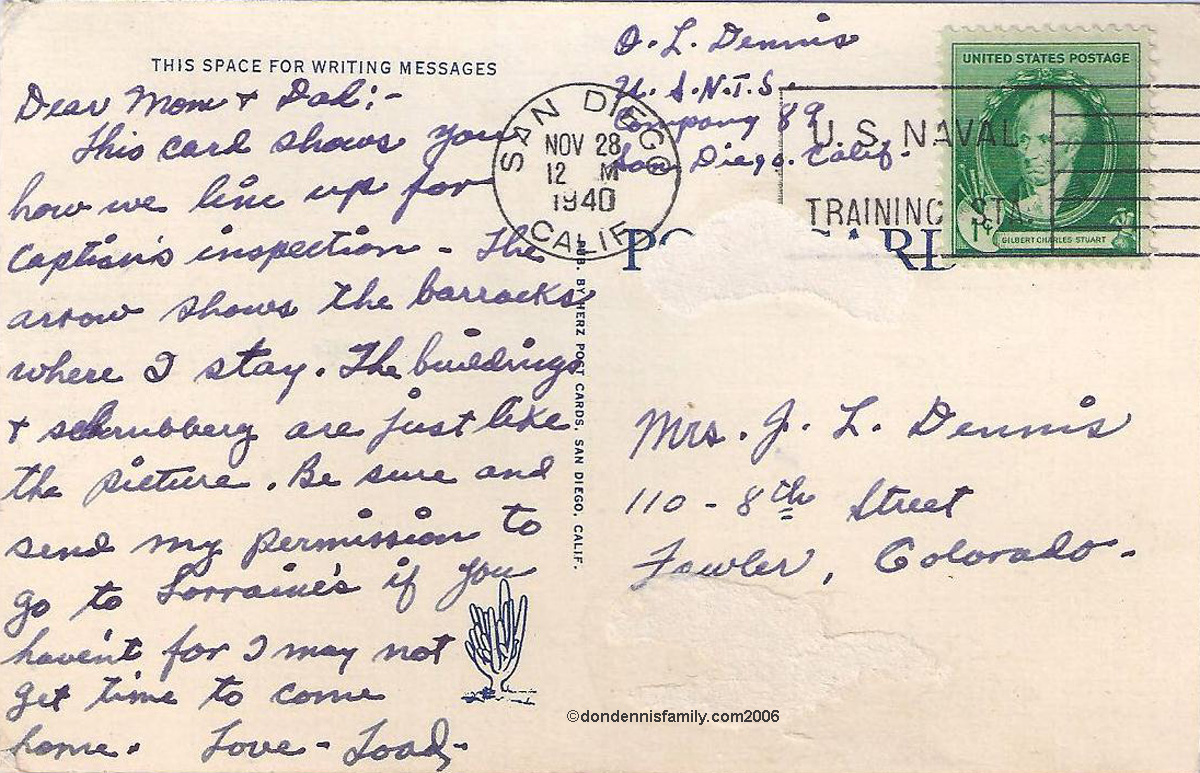 THIS SPACE FOR WRITING MESSAGES
Dear Mom & Dad:-
This card shows you
how we line up for
Captian's inspection - The
arrow shows the barracks
where I stay. The buildings
& schrubbery are just like
the picture. Be sure and
send my permission to
go to Lorraine's if you
haven't for I may not
get time to come
home. Love - Toad,-
PUB. BY HERZ POST CARDS, SAN DIEGO, CALIF.
O. L. Dennis
U.S.N.T.S.
Company 89
San Diego. Calif.
SAN DIEGO
NOV 28
12 M
1940
CALIF.
U.S. NAVAL
TRAINING STA
UNITED STATES POSTAGE
1¢
GILBERT CHARLES STUART
Mrs. J. L. Dennis
110 - 8th Street
Fowler, Colorado -
©dondennisfamily.com2006